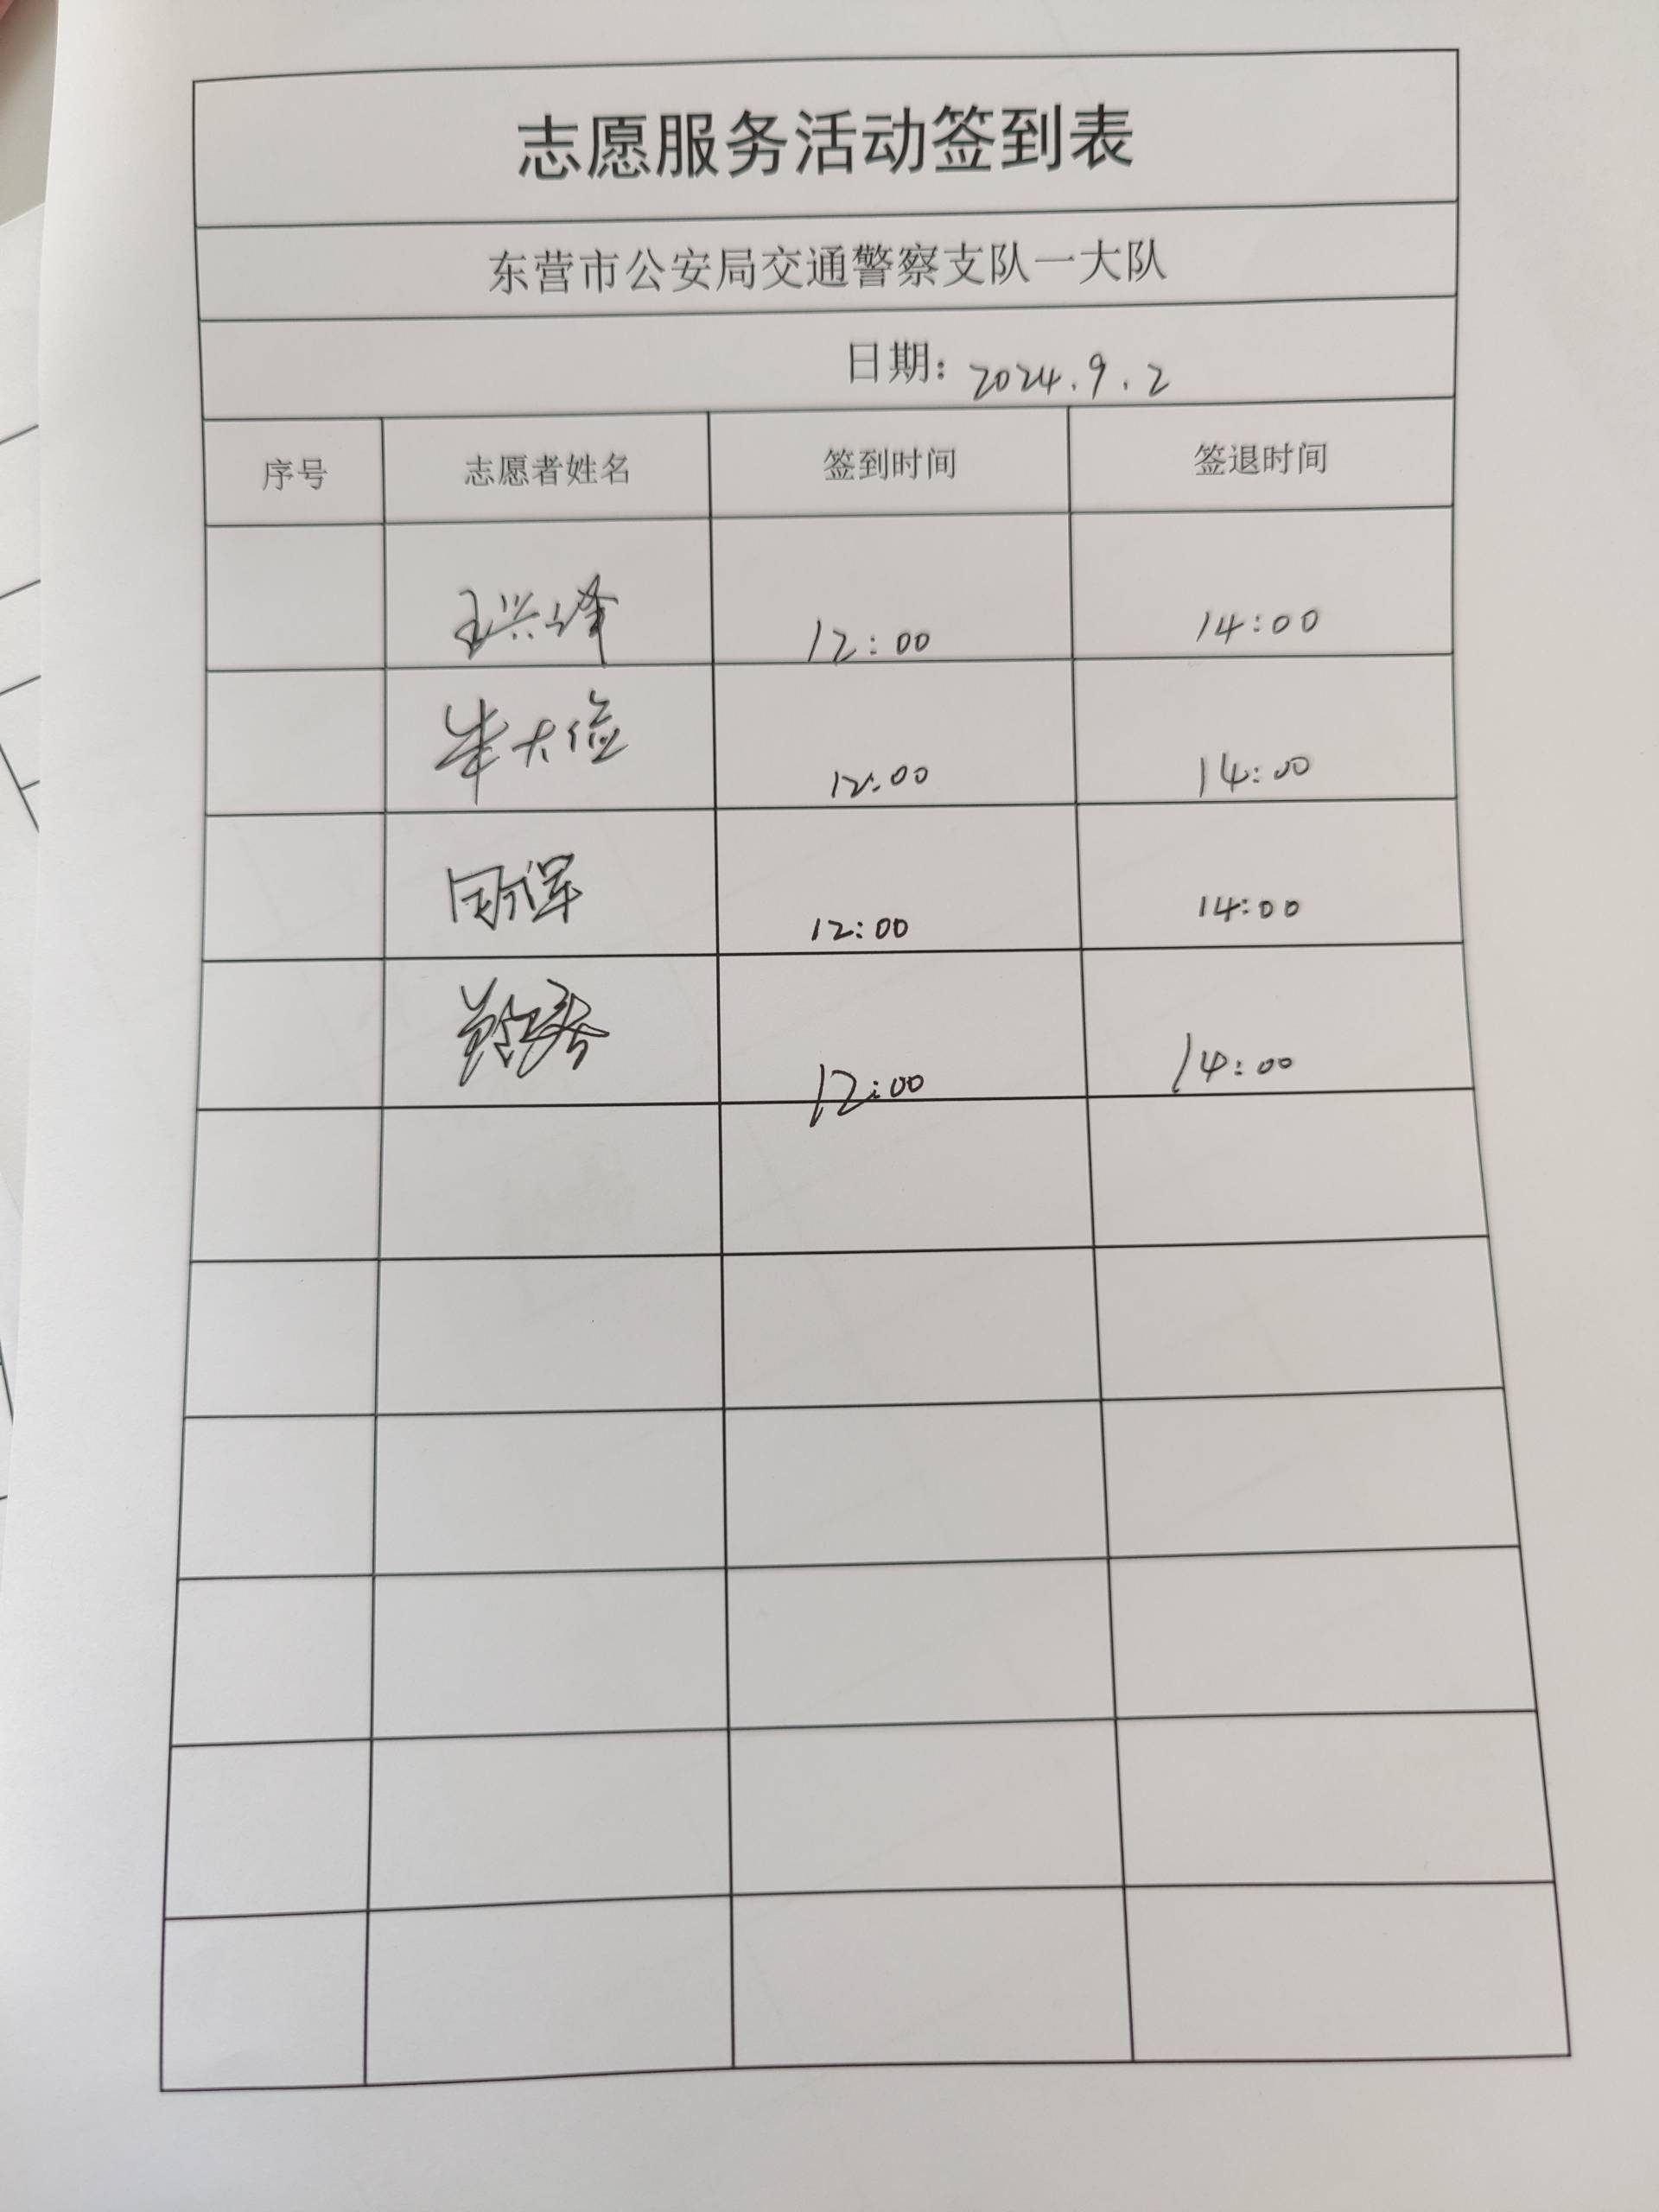 志愿服务活动签到表
东营市公安局交通警察支队一大队
日期：2024.9.2
序号 志愿者姓名 签到时间 签退时间
王兴峰 12:00 14:00
12:00 14:00
12:00 14:00
12:00 14:00